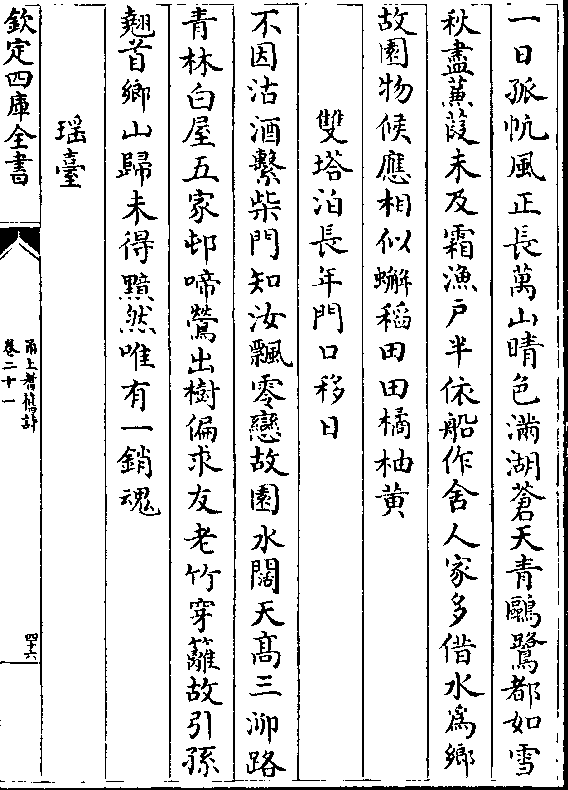 一日孤帆風正長萬山晴色滿湖蒼天青鷗鷺都如雪
秋盡蒹葭未及霜漁戸半依船作舍人家多借水爲鄉
故園物候應相似蠏稻田田橘柚黄
雙塔泊長年門口移日
不因沽酒繫柴門知汝飄零戀故園水闊天髙三泖路
青林白屋五家邨啼鶯出樹偏求友老竹穿籬故引孫
翹首鄉山歸未得黯然唯有一銷魂
瑶臺
欽定四庫全書
甬上耆舊詩
卷二十一
四十六